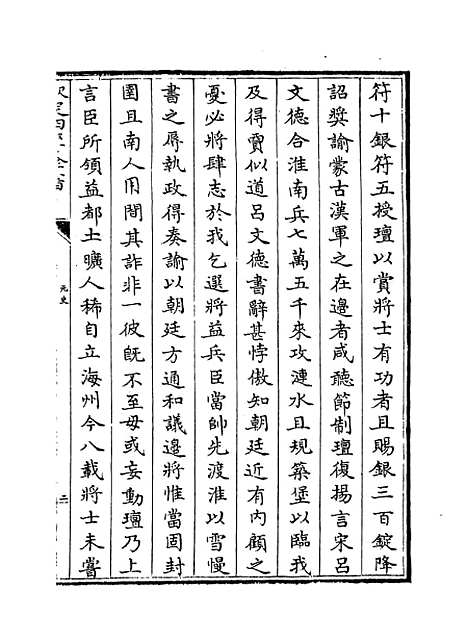 符十銀符五授璮以賞將士有功者且賜銀三百錠降
詔奬諭蒙古漢軍之在邊者咸聽節制璮復揚言宋呂
文德合淮南兵七萬五千來攻漣水且規築堡以臨我
及得賈似道呂文德書辭甚悖傲知朝廷近有内顧之
憂必將肆志於我乞選將益兵臣當帥先渡淮以雪慢
書之辱執政得奏諭以朝廷方通和議邊將惟當固封
圉且南人用間其詐非一彼既不至毋或妄動璮乃上
言臣所領益都土曠人稀自立海州今八載將士未嘗
欽定四庫全書
元史
二